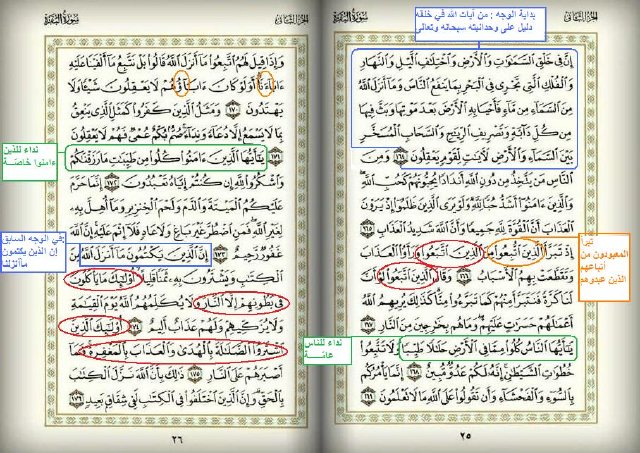 سورة البقرة
الجزء الثاني
بداية الوجه : من آيات الله في خلقه
دليل على وحدانيته سبحانه وتعالى
إِنَّ فِي خَلْقِ السَّمَاوَاتِ وَالْأَرْضِ وَاخْتِلَافِ اللَّيْلِ وَالنَّهَارِ
وَالْفُلْكِ الَّتِي تَجْرِي فِي الْبَحْرِ بِمَا يَنفَعُ النَّاسَ وَمَا أَنزَلَ اللَّهُ
مِنَ السَّمَاءِ مِن مَّاءٍ فَأَحْيَا بِهِ الْأَرْضَ بَعْدَ مَوْتِهَا وَبَثَّ فِيهَا
مِن كُلِّ دَابَّةٍ وَتَصْرِيفِ الرِّيَاحِ وَالسَّحَابِ الْمُسَخَّرِ
بَيْنَ السَّمَاءِ وَالْأَرْضِ لَآيَاتٍ لِّقَوْمٍ يَعْقِلُونَ ١٦٤ وَمِنَ
النَّاسِ مَن يَتَّخِذُ مِن دُونِ اللَّهِ أَندَادًا يُحِبُّونَهُمْ كَحُبِّ اللَّهِ
وَالَّذِينَ آمَنُوا أَشَدُّ حُبًّا لِّلَّهِ وَلَوْ يَرَى الَّذِينَ ظَلَمُوا إِذْ يَرَوْنَ
الْعَذَابَ أَنَّ الْقُوَّةَ لِلَّهِ جَمِيعًا وَأَنَّ اللَّهَ شَدِيدُ الْعَذَابِ ١٦٥
إِذْ تَبَرَّأَ الَّذِينَ اتُّبِعُوا مِنَ الَّذِينَ اتَّبَعُوا وَرَأَوُا الْعَذَابَ
وَتَقَطَّعَتْ بِهِمُ الْأَسْبَابُ ١٦٦ وَقَالَ الَّذِينَ اتَّبَعُوا لَوْ أَنَّ
لَنَا كَرَّةً فَنَتَبَرَّأَ مِنْهُمْ كَمَا تَبَرَّءُوا مِنَّا كَذَٰلِكَ يُرِيهِمُ اللَّهُ
أَعْمَالَهُمْ حَسَرَاتٍ عَلَيْهِمْ وَمَا هُم بِخَارِجِينَ مِنَ النَّارِ ١٦٧
يَا أَيُّهَا النَّاسُ كُلُوا مِمَّا فِي الْأَرْضِ حَلَالًا طَيِّبًا وَلَا تَتَّبِعُوا
خُطُوَاتِ الشَّيْطَانِ إِنَّهُ لَكُمْ عَدُوٌّ مُّبِينٌ ١٦٨ إِنَّمَا يَأْمُرُكُم
بِالسُّوءِ وَالْفَحْشَاءِ وَأَن تَقُولُوا عَلَى اللَّهِ مَا لَا تَعْلَمُونَ ١٦٩
٢٥
تبرأ
المعبودون من
أتباعهم
الذين عبدوهم
نداء للناس
عامة
الجزء الثاني
سورة البقرة
وَإِذَا قِيلَ لَهُمُ اتَّبِعُوا مَا أَنزَلَ اللَّهُ قَالُوا بَلْ نَتَّبِعُ مَا أَلْفَيْنَا عَلَيْهِ
آبَاءَنَا أَوَلَوْ كَانَ آبَاؤُهُمْ لَا يَعْقِلُونَ شَيْئًا وَلَا
يَهْتَدُونَ ١٧٠ وَمَثَلُ الَّذِينَ كَفَرُوا كَمَثَلِ الَّذِي يَنْعِقُ
بِمَا لَا يَسْمَعُ إِلَّا دُعَاءً وَنِدَاءً صُمٌّ بُكْمٌ عُمْيٌ فَهُمْ لَا يَعْقِلُونَ
١٧١ يَا أَيُّهَا الَّذِينَ آمَنُوا كُلُوا مِن طَيِّبَاتِ مَا رَزَقْنَاكُمْ
وَاشْكُرُوا لِلَّهِ إِن كُنتُمْ إِيَّاهُ تَعْبُدُونَ ١٧٢ إِنَّمَا حَرَّمَ
عَلَيْكُمُ الْمَيْتَةَ وَالدَّمَ وَلَحْمَ الْخِنزِيرِ وَمَا أُهِلَّ بِهِ
لِغَيْرِ اللَّهِ فَمَنِ اضْطُرَّ غَيْرَ بَاغٍ وَلَا عَادٍ فَلَا إِثْمَ عَلَيْهِ إِنَّ اللَّهَ
غَفُورٌ رَّحِيمٌ ١٧٣ إِنَّ الَّذِينَ يَكْتُمُونَ مَا أَنزَلَ اللَّهُ مِنَ
الْكِتَابِ وَيَشْتَرُونَ بِهِ ثَمَنًا قَلِيلًا أُولَٰئِكَ مَا يَأْكُلُونَ
فِي بُطُونِهِمْ إِلَّا النَّارَ وَلَا يُكَلِّمُهُمُ اللَّهُ يَوْمَ الْقِيَامَةِ
وَلَا يُزَكِّيهِمْ وَلَهُمْ عَذَابٌ أَلِيمٌ ١٧٤ أُولَٰئِكَ الَّذِينَ
اشْتَرَوُا الضَّلَالَةَ بِالْهُدَىٰ وَالْعَذَابَ بِالْمَغْفِرَةِ فَمَا
أَصْبَرَهُمْ عَلَى النَّارِ ١٧٥ ذَٰلِكَ بِأَنَّ اللَّهَ نَزَّلَ الْكِتَابَ
بِالْحَقِّ وَإِنَّ الَّذِينَ اخْتَلَفُوا فِي الْكِتَابِ لَفِي شِقَاقٍ بَعِيدٍ ١٧٦
٢٦
نداء للذين
ءامنوا خاصة
في الوجه السابق
إن الذين يكتمون
ماأنزلنا